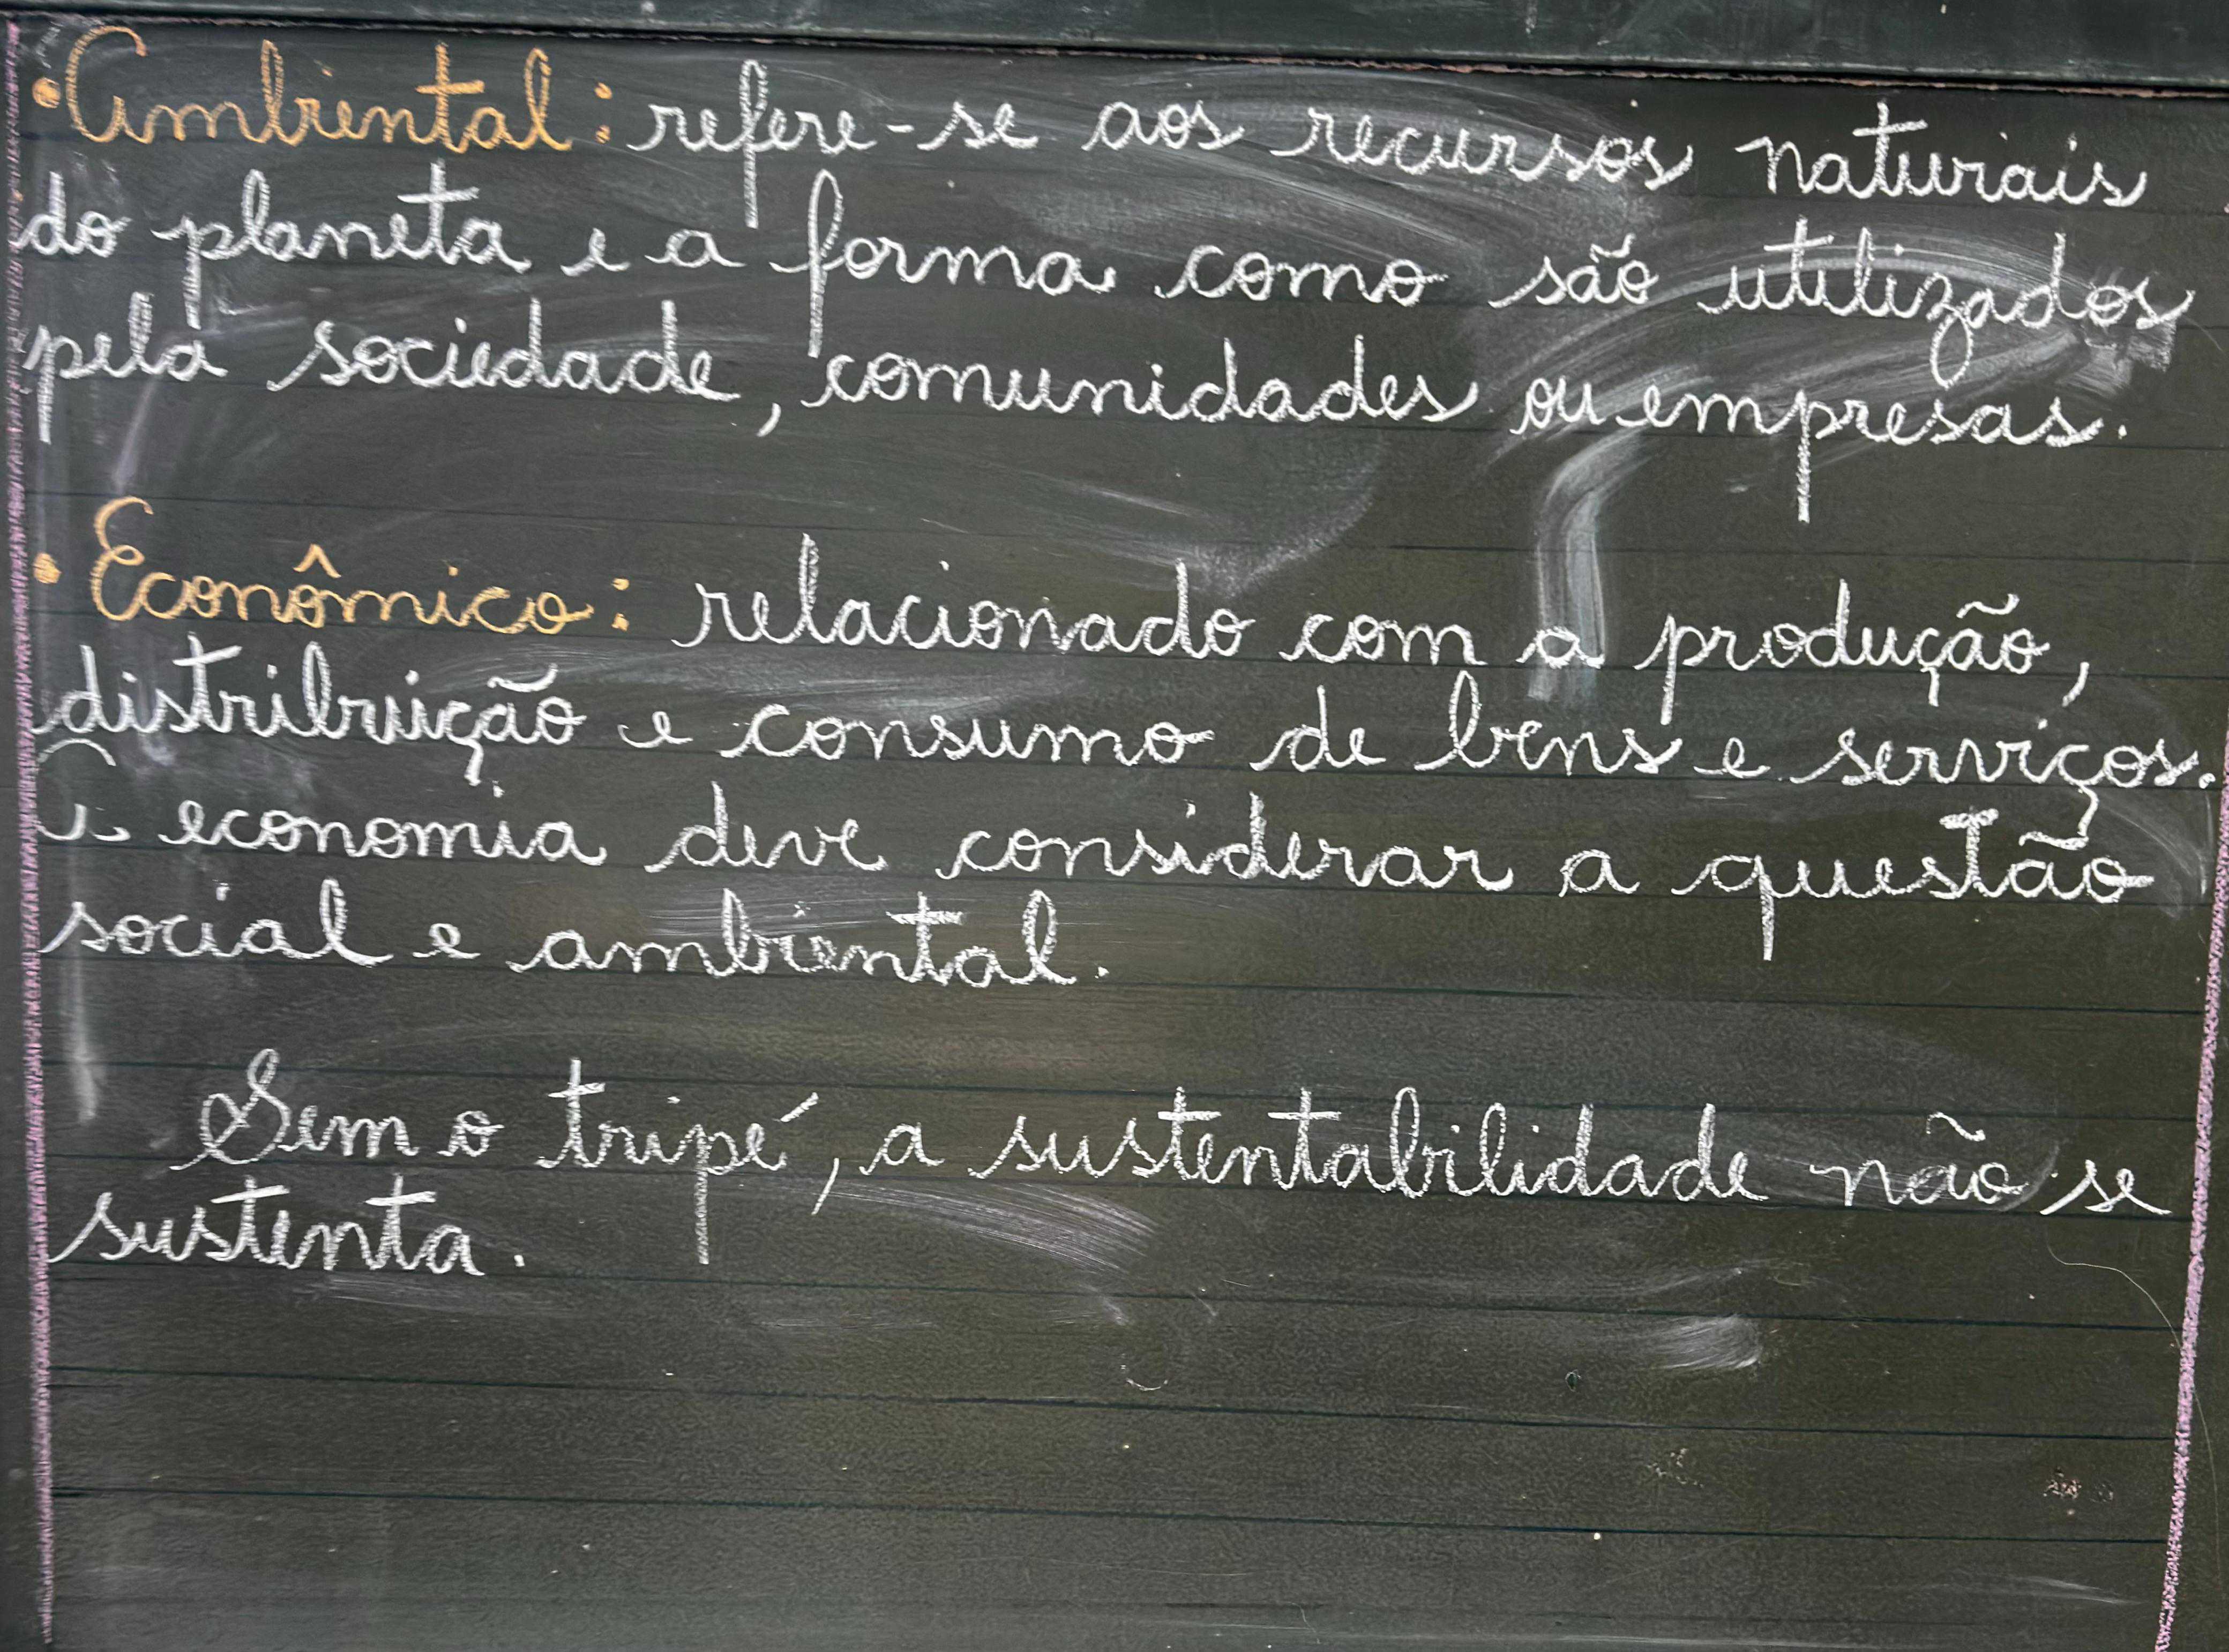 • Ambiental: refere-se aos recursos naturais
do planeta e a forma como são utilizados
pela sociedade, comunidades ou empresas.
• Econômico: relacionado com a produção,
distribuição e consumo de bens e serviços.
A economia deve considerar a questão
social e ambiental.
Sem o tripé, a sustentabilidade não se
sustenta.